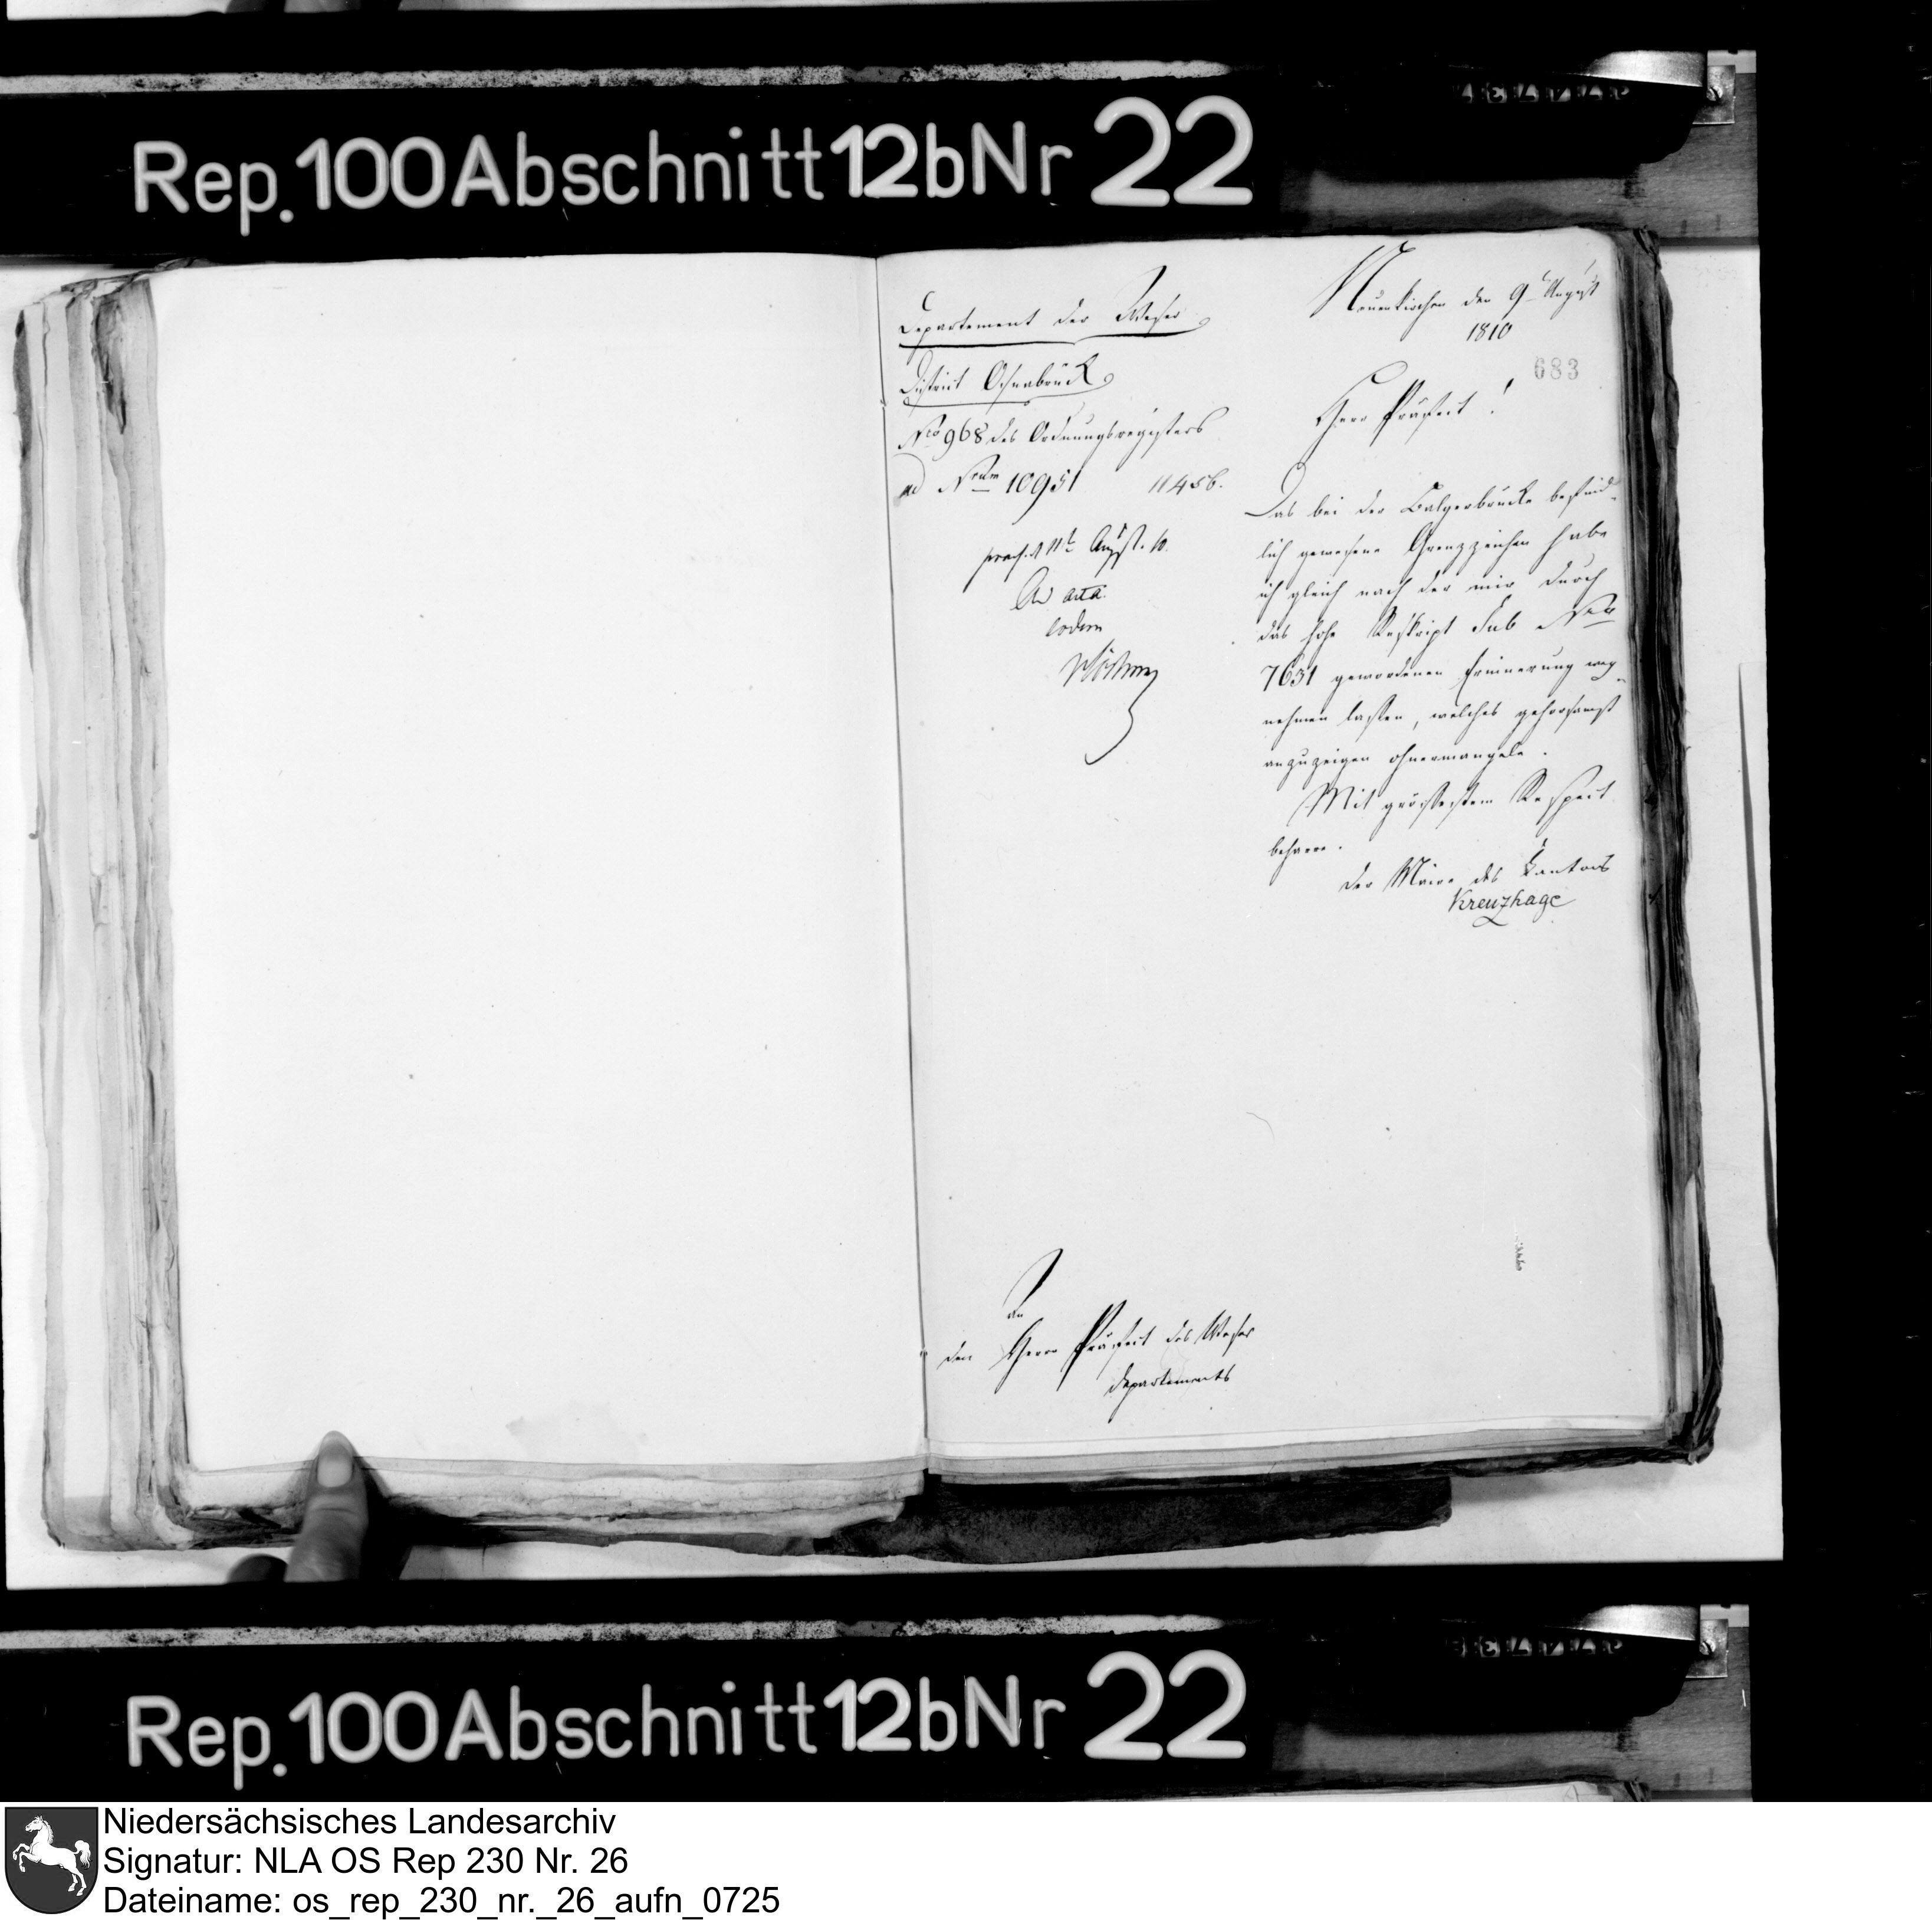 Rep. 100 Abschnitt 12b Nr 22
Departement der Weser
District Osnabrück
Nro 968 des Ordnungsregisters
ad Nrum 10951 11456.
praes. d 11t August. 10.
Ad acta.
eodem
Neuenkirchen den 9t August
1810
683
Herr Präfect!
Das bei der Balgerbrücke befind-
lich gewesene Grenzzeichen habe
ich gleich nach der mir durch
das hohe Reskript sub Nro
7631 gewordenen Erinnerung weg-
nehmen lassen, welches gehorsamst
anzuzeigen ohnermangele.
Mit größestem Respect
beharre.
der Maire des Kantons
Kreuzhage
An
den Herrn Präfect des Weser
departements
Rep. 100 Abschnitt 12b Nr 22
Niedersächsisches Landesarchiv
Signatur: NLA OS Rep 230 Nr. 26
Dateiname: os_rep_230_nr._26_aufn_0725